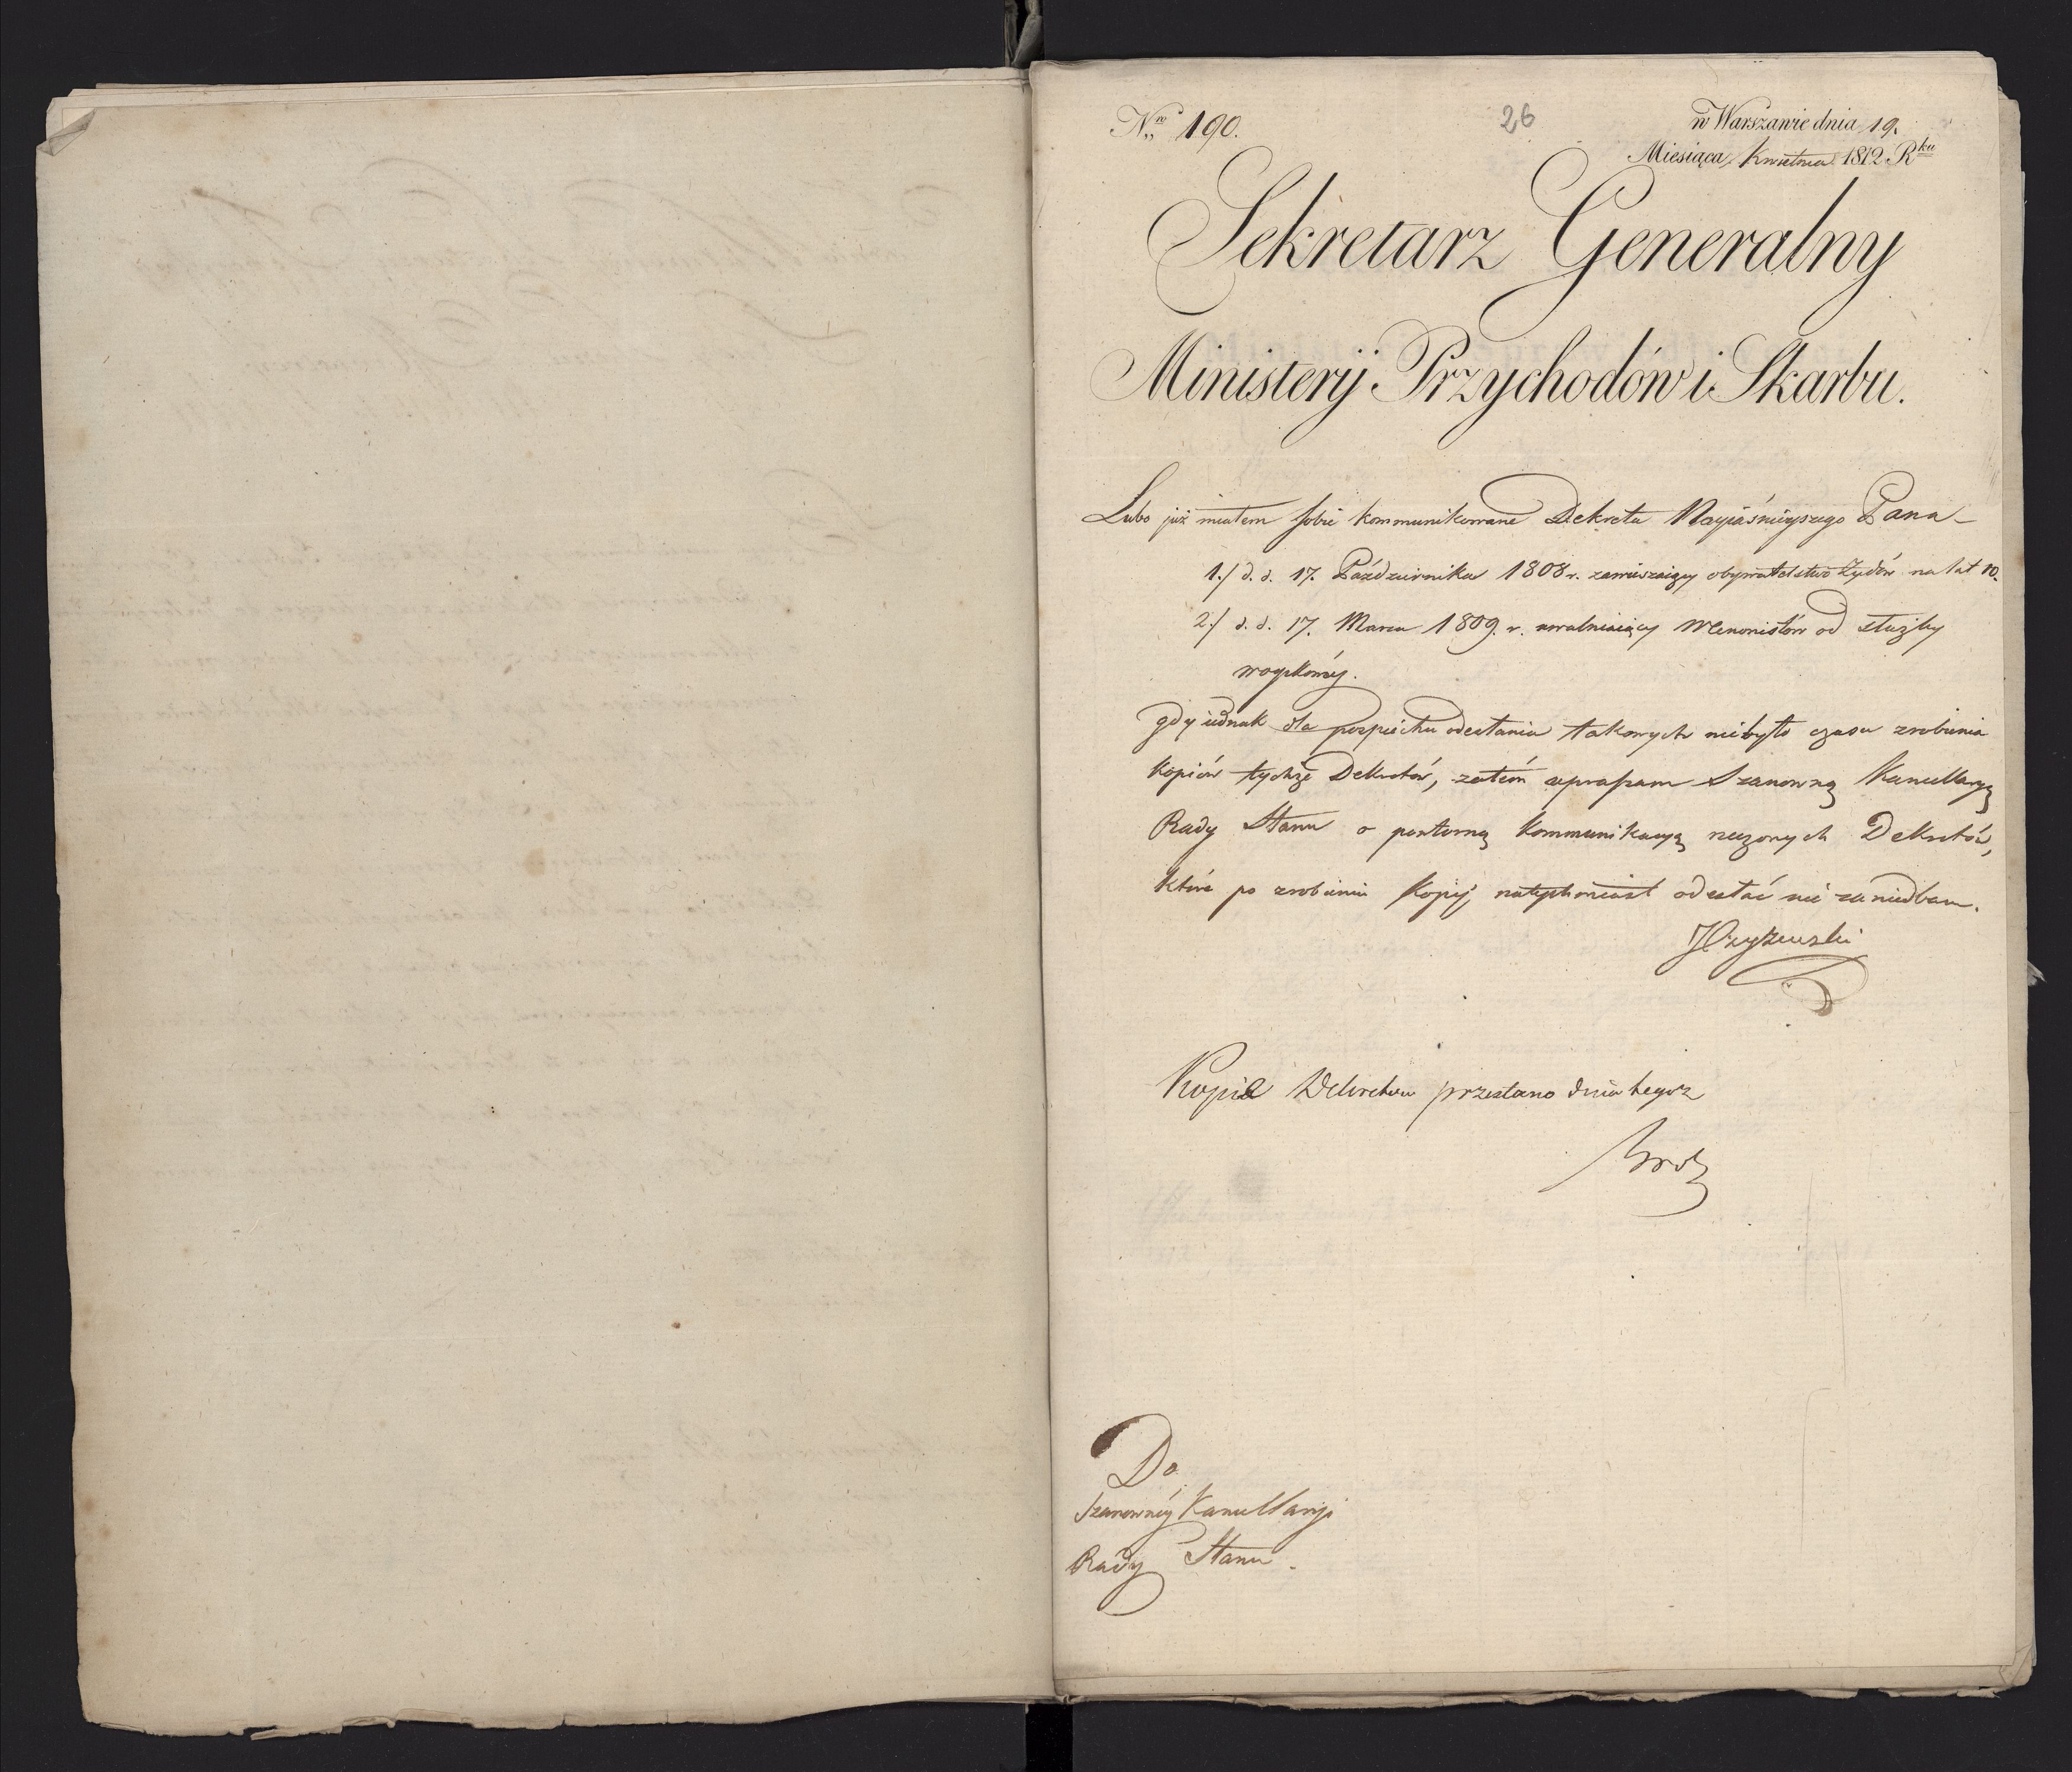 Nro 190.
26
w Warszawie dnia 19.
Miesiąca Kwietnia 1812 Rku
Sekretarz Generalny
Ministerij Przychodów i Skarbu.
Lubo już miałem sobie kommunikowane Dekreta Nayiaśnieyszego Pana
1./ d. d. 17. Października 1808 r. zawieszaiący obywatelstwo Żydów na lat 10.
2./ d. d. 17. Marca 1809. r. uwalniaiący Menonistów od służby
woyskowéy.
gdy iednak dla pospiechu odesłania takowych niebyło czasu zrobienia
kopiów tychże Dekretów, zatém upraszam Szanowną Kancellaryą
Rady Stanu o powtorną kommunikacyą rzeczonych Dekretów,
które po zrobieniu kopij natychmiast odesłać nie zaniedbam.
Kopie Dekretow przesłano dnia tegoż
Do
Szanownéy Kancellaryi
Rady Stanu.